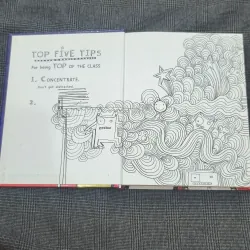 TOP FIVE TIPS
For being TOP OF THE CLASS
1. CONCENTRATE.
Don't get distracted.
2.